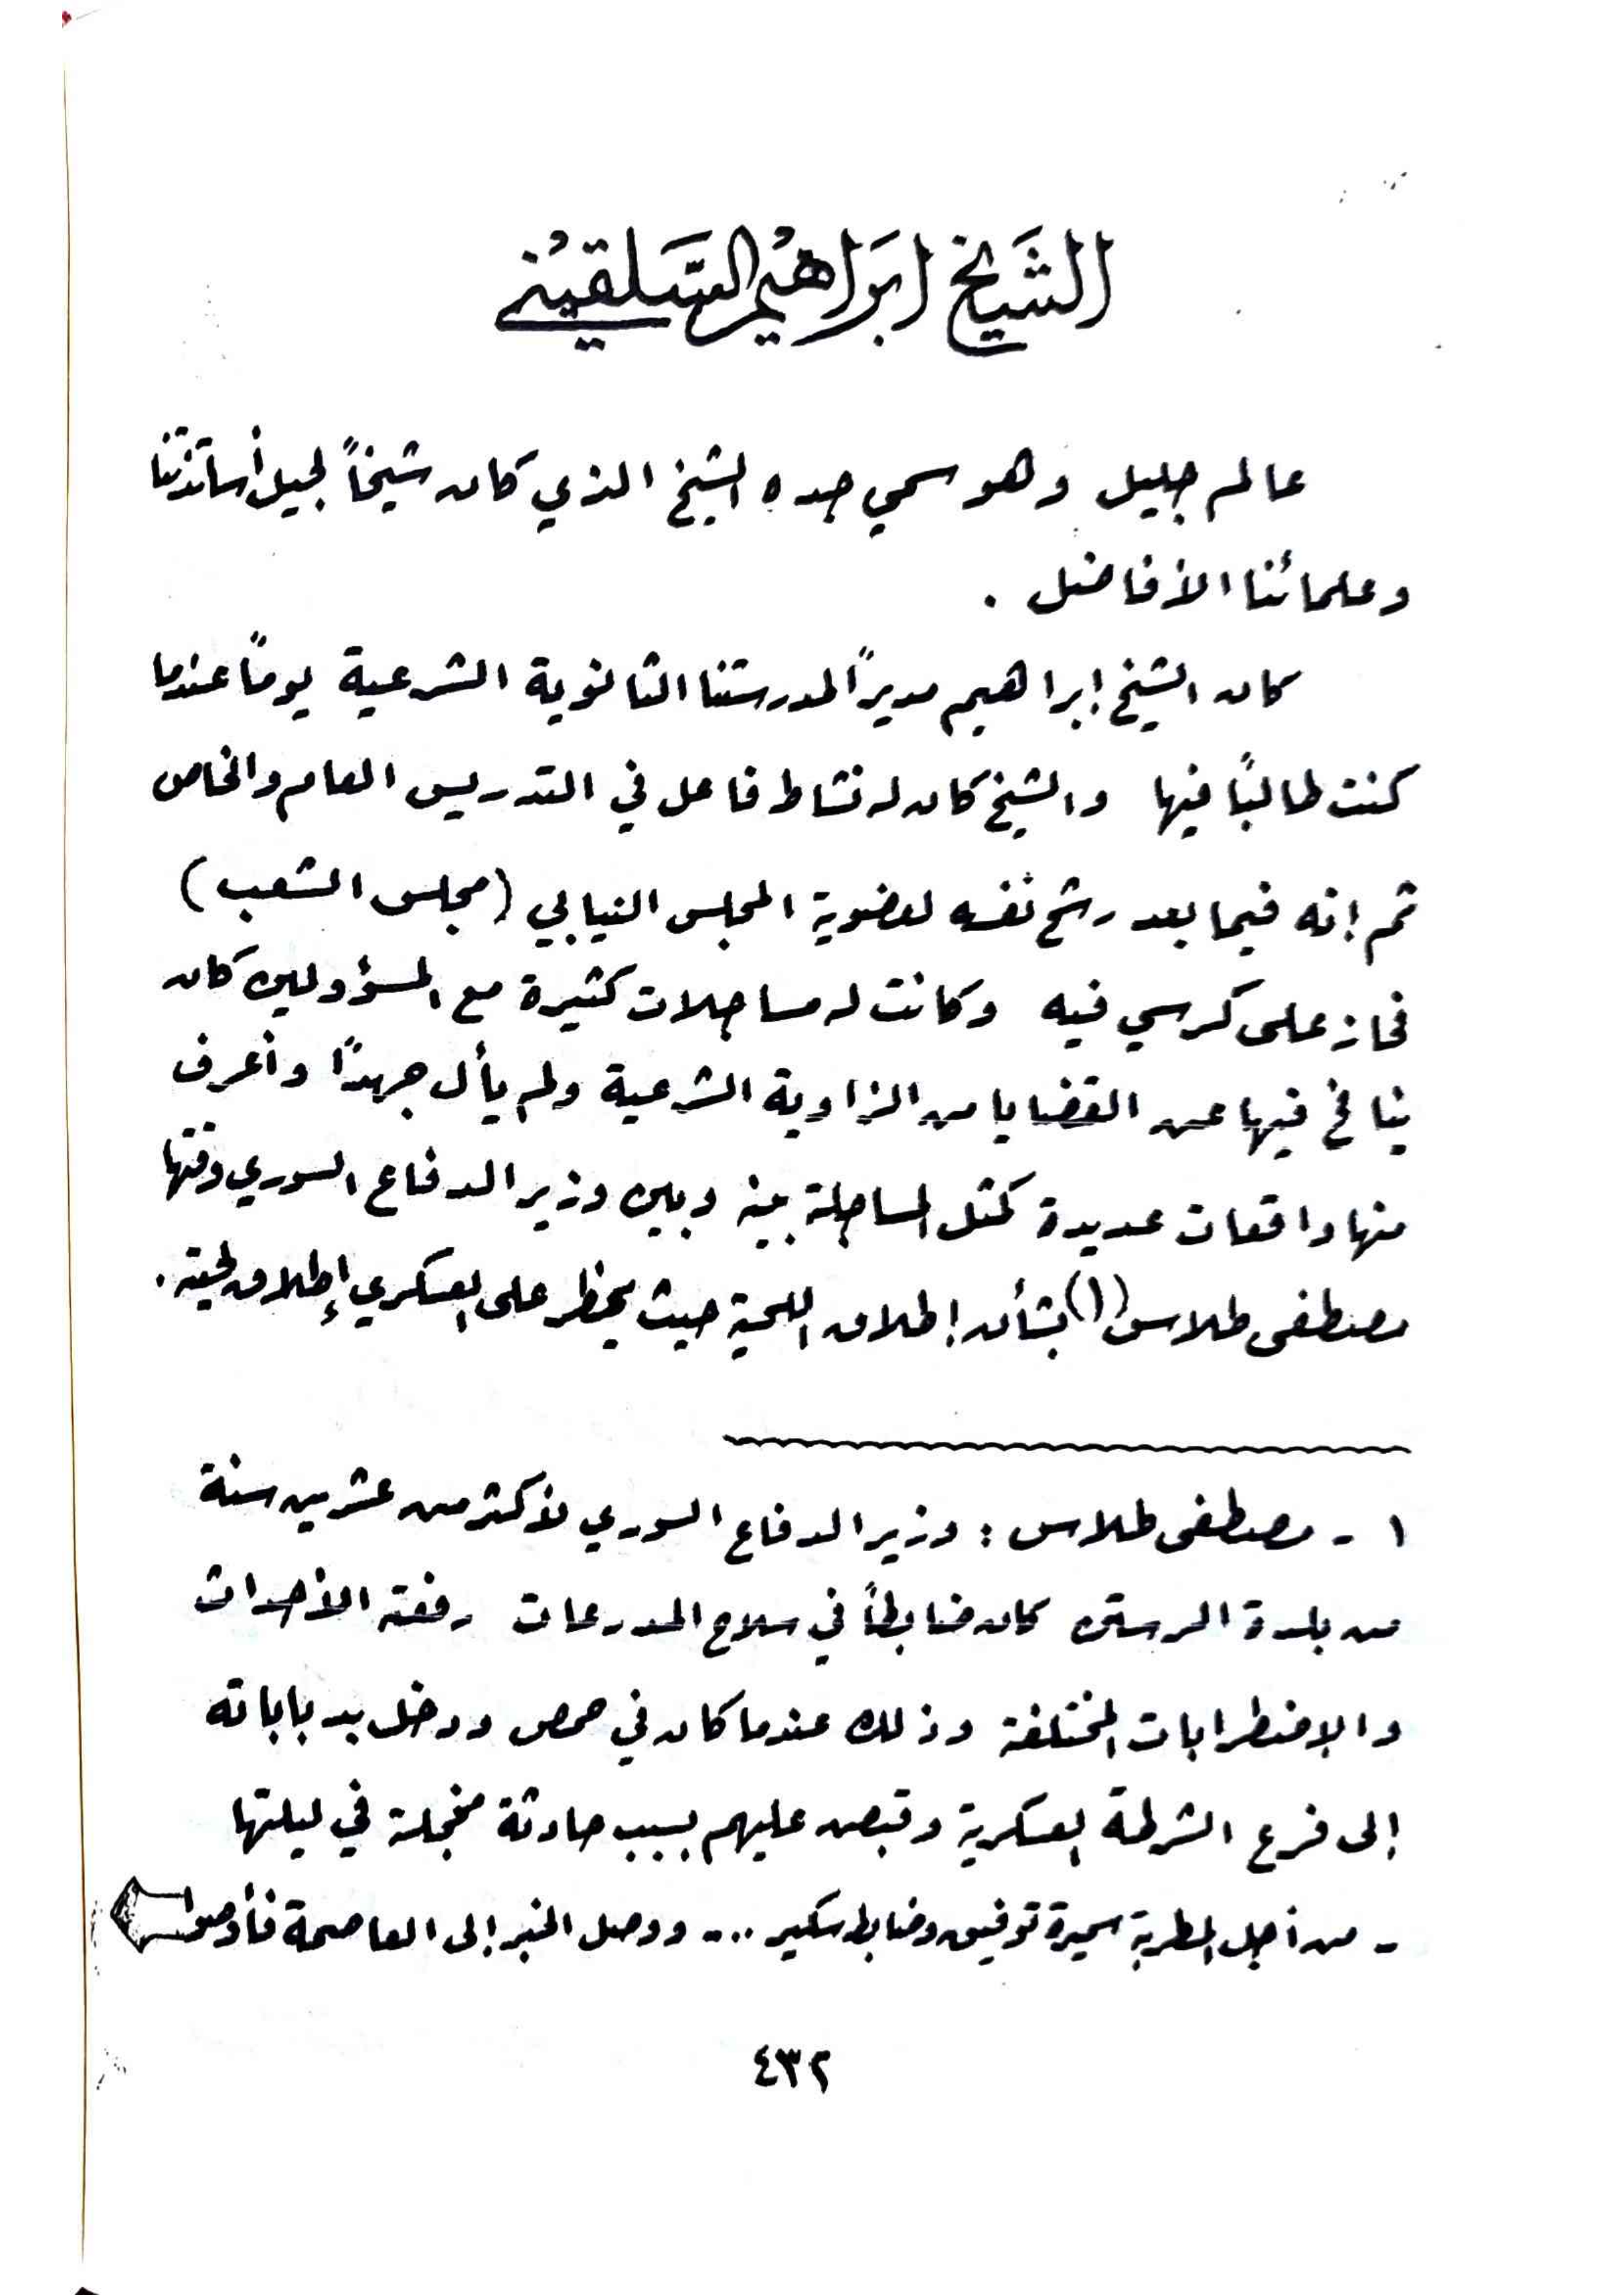 الشَيخ ابَراهيْم السَّلقيْني
عالم جليل وهو سمي جده الشيخ الذي كان شيخاً لجيل أساتذتنا
وعلمائنا الأفاضل .
كان الشيخ إبراهيم مديراً لمدرستنا الثانوية الشرعية يوماً عندما
كنت طالباً فيها والشيخ كان له نشاط فاعل في التدريس العام والخاص
ثم إنه فيما بعد رشح نفسه لعضوية المجلس النيابي (مجلس الشعب)
فحاز على كرسي فيه وكانت له مساجلات كثيرة مع المسؤولين كان
ينافح فيها عن القضايا من الزاوية الشرعية ولم يأل جهداً وأعرف
منها واقعات عديدة كمثل المساجلة بينه وبين وزير الدفاع السوري وقتها
مصطفى طلاس (١) بشأن إطلاق اللحية حيث يحظر على العسكري إطلاق لحيته .
١ - مصطفى طلاس : وزير الدفاع السوري لأكثر من عشرين سنة
من بلدة الرستن كان ضابطاً في سلاح المدرعات رفعته الأحداث
والاضطرابات المختلفة وذلك عندما كان في حمص ودخل بدباباته
إلى فرع الشرطة العسكرية وقبض عليهم بسبب حادثة مخجلة في ليلتها
- من أجل المطربة سميرة توفيق وضابط سكير ... ووصل الخبر إلى العاصمة فأوصوا
٤٣٢